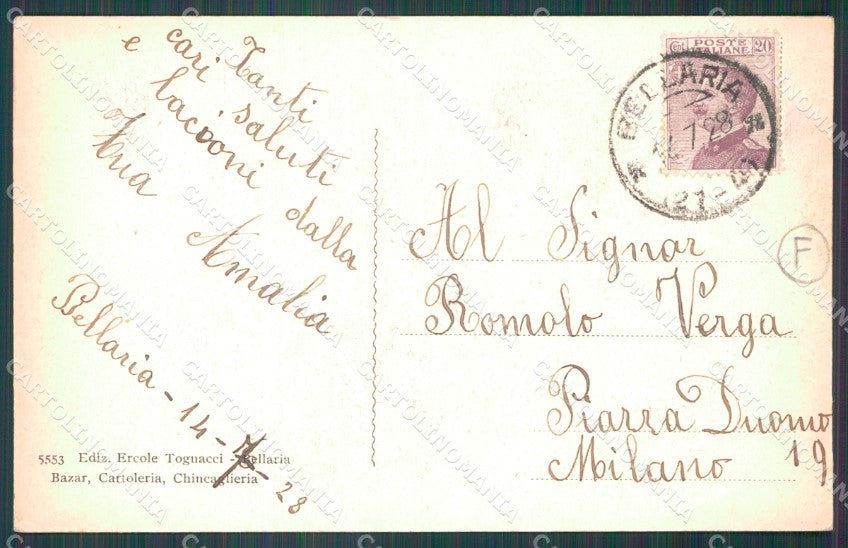 Tanti
cari saluti
e bacioni dalla
tua Amalia
Bellaria - 14 - 7 - 28
5553 Ediz. Ercole Tognacci - Bellaria
Bazar, Cartoleria, Chincaglieria
POSTE
ITALIANE
20
BELLARIA
7 28
Al Signor
Romolo Verga
Piazza Duomo
19
Milano
F
CARTOLINOMANIA